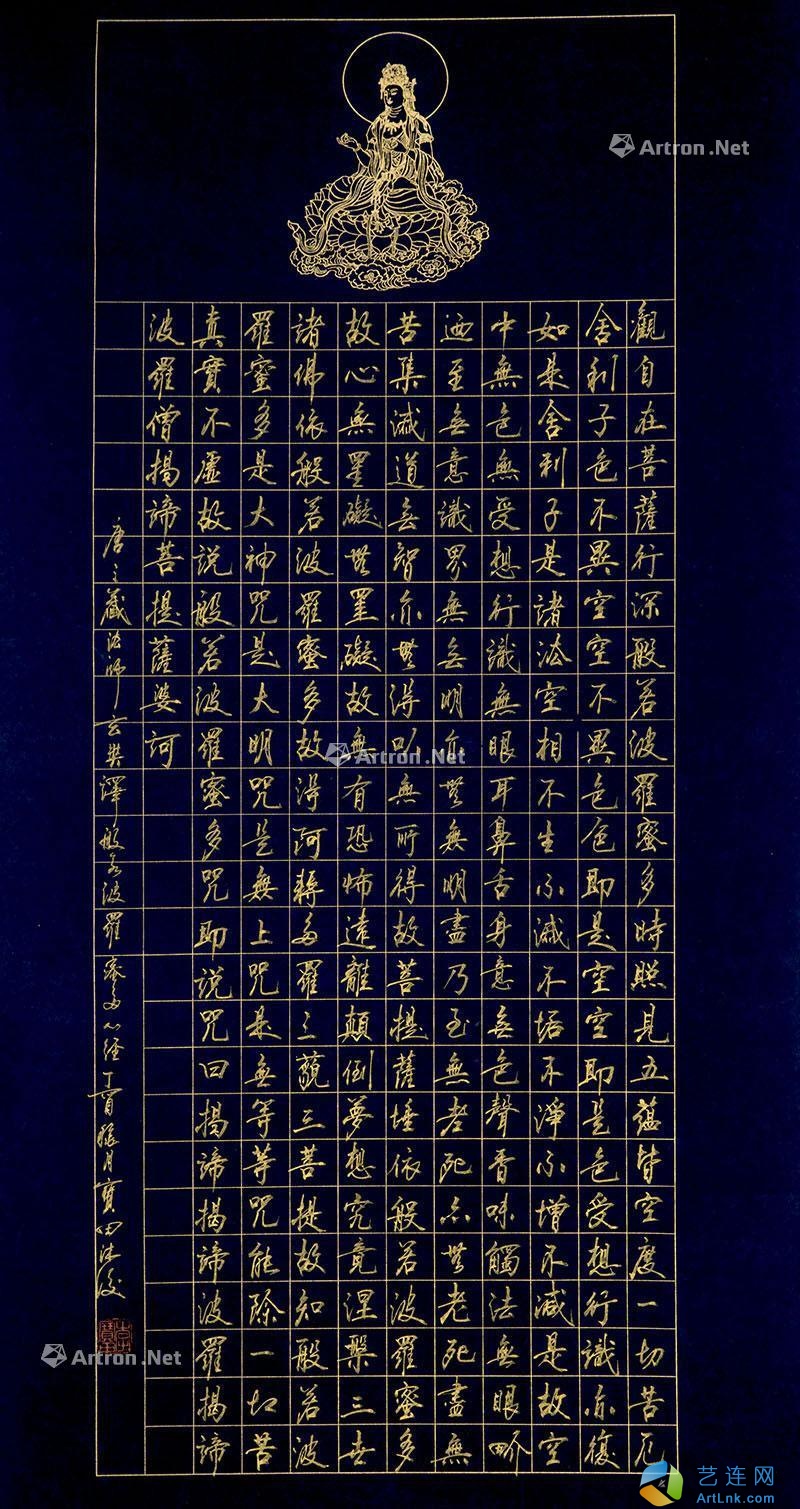 觀自在菩薩行深般若波羅蜜多時照見五蘊皆空度一切苦厄
舍利子色不異空空不異色色即是空空即是色受想行識亦復
如是舍利子是諸法空相不生不滅不垢不淨不增不減是故空
中無色無受想行識無眼耳鼻舌身意無色聲香味觸法無眼界
迺至無意識界無無明亦無無明盡乃至無老死亦無老死盡無
苦集滅道無智亦無得以無所得故菩提薩埵依般若波羅蜜多
故心無罣礙無罣礙故無有恐怖遠離顛倒夢想究竟涅槃三世
諸佛依般若波羅蜜多故得阿耨多羅三藐三菩提故知般若波
羅蜜多是大神咒是大明咒是無上咒是無等等咒能除一切苦
真實不虛故說般若波羅蜜多咒即說咒曰揭諦揭諦波羅揭諦
波羅僧揭諦菩提薩婆訶
唐三藏法師玄奘譯般若波羅蜜多心經丁酉臘月寶田沐
Artron.Net
Artron.Net
Artron.Net
艺连网
ArtLnk.com